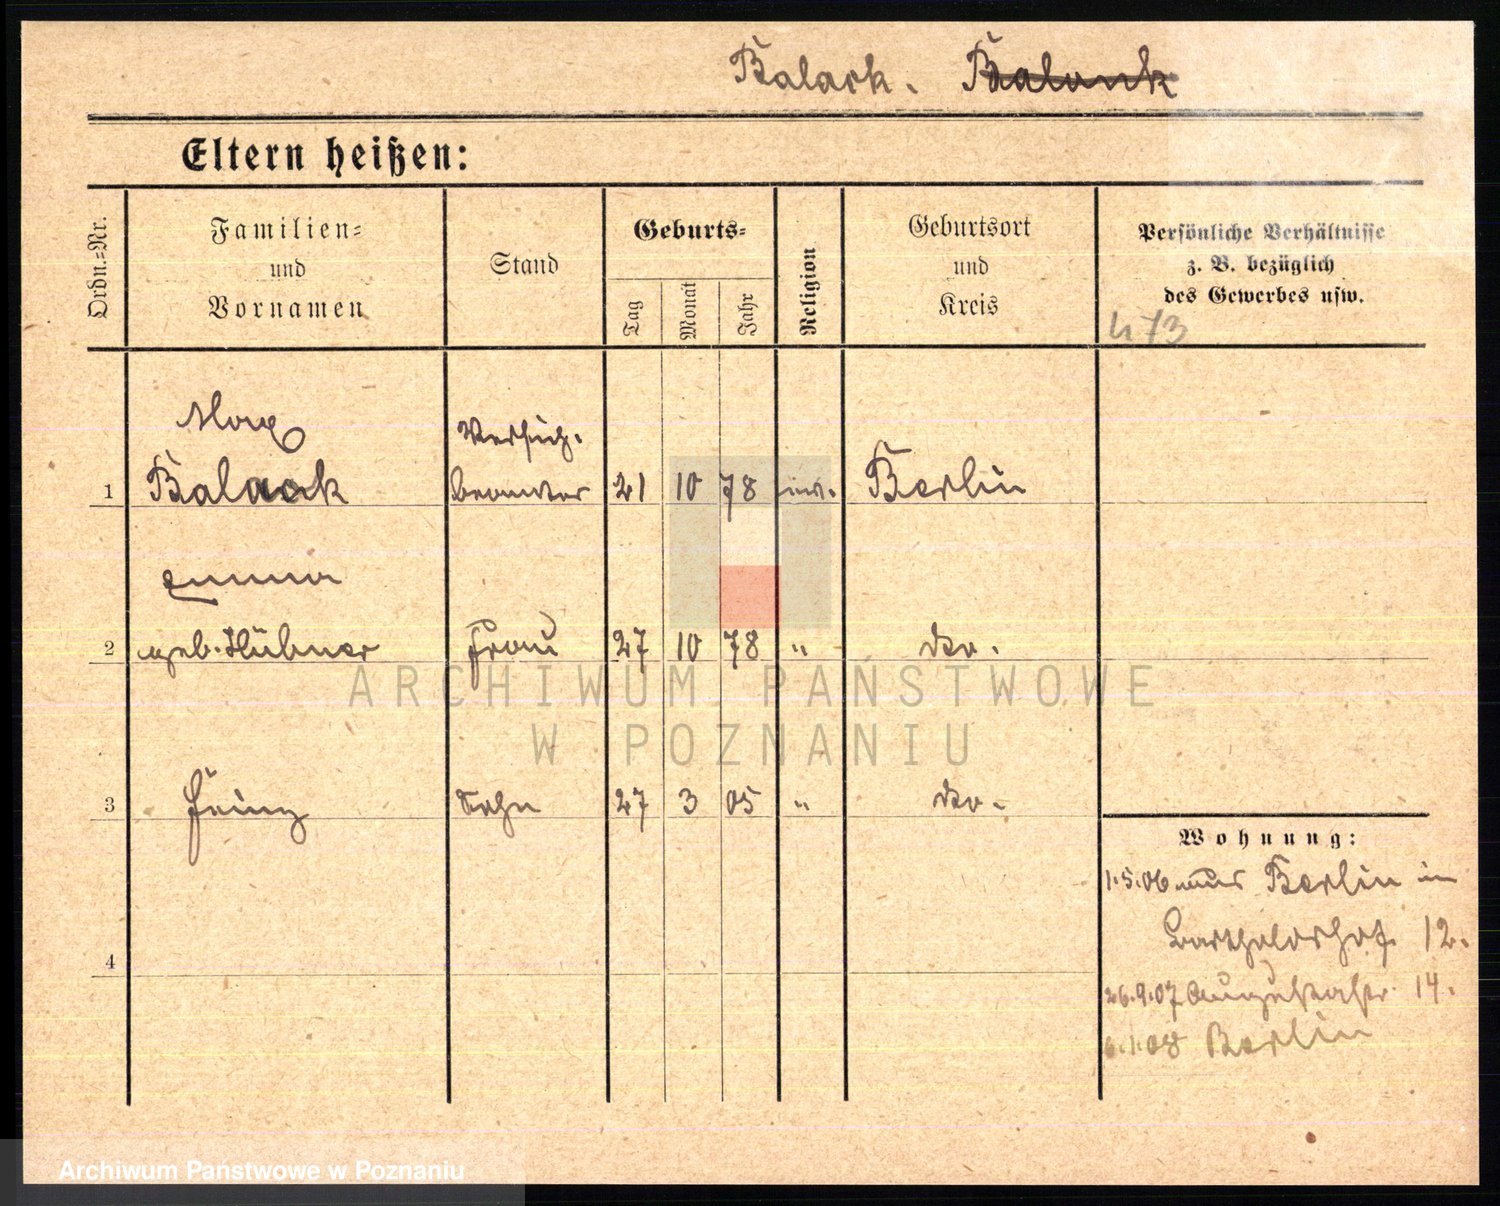 Balack. Balank
Eltern heißen:
Ordn.=Nr.
Familien=
und
Vornamen
Stand
Geburts=
Tag
Monat
Jahr
Religion
Geburtsort
und
Kreis
Persönliche Verhältnisse
z. B. bezüglich
des Gewerbes usw.
473
Max Versich.
1 Balack beamter 21 10 78 Berlin
Emma
2 geb. Hübner Frau 27 10 78 " do.
3 Heinz Sohn 27 3 05 " do.
4
Wohnung:
1.5.06 aus Berlin in
Bartholdshof 12.
26.9.07 Augustastr. 14.
6.1.08 Berlin
ARCHIWUM PAŃSTWOWE
W POZNANIU
Archiwum Państwowe w Poznaniu